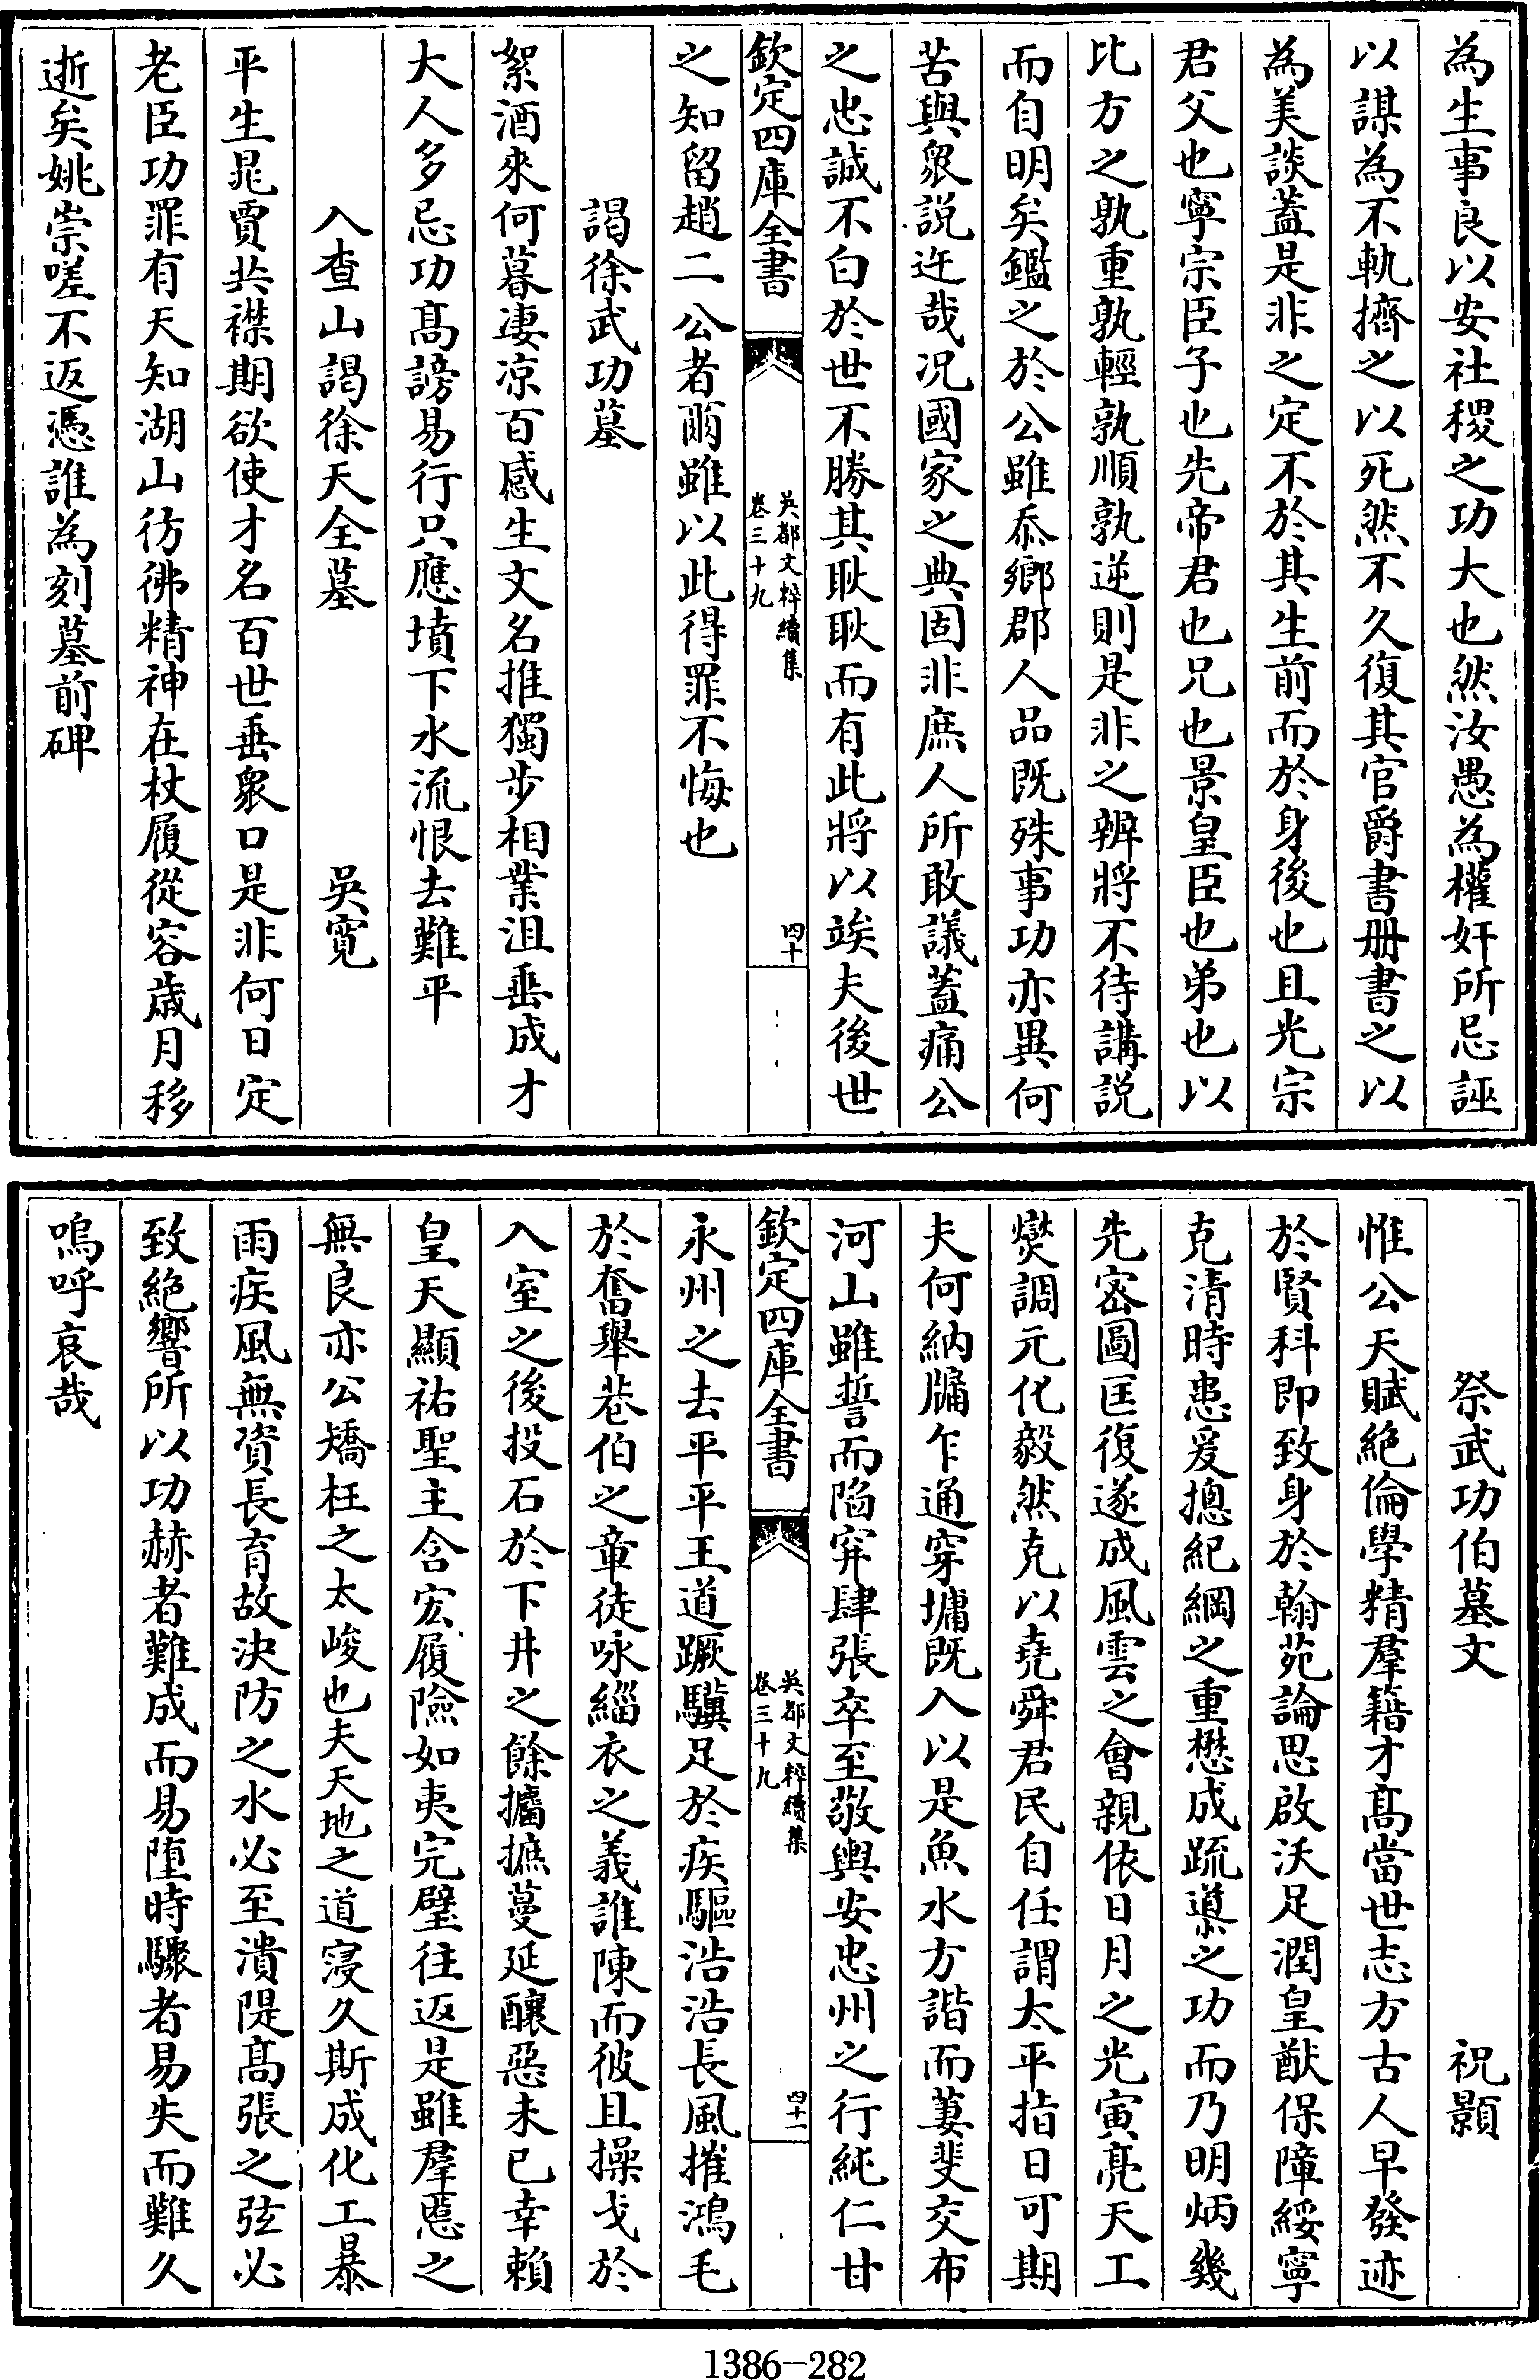 為生事良以安社稷之功大也然汝愚為權奸所忌誣
以謀為不軌擠之以死然不久復其官爵書册書之以
為美談蓋是非之定不於其生前而於身後也且光宗
君父也寧宗臣子也先帝君也兄也景皇臣也弟也以
比方之孰重孰輕孰順孰逆則是非之辨將不待講説
而自明矣鑑之於公雖忝鄉郡人品既殊事功亦異何
苦與衆説迕哉况國家之典固非庶人所敢議蓋痛公
之忠誠不白於世不勝其耿耿而有此將以竢夫後世
欽定四庫全書
吳都文粹續集
卷三十九
四十
之知留趙二公者爾雖以此得罪不悔也
謁徐武功墓
絮酒來何暮凄凉百感生文名推獨步相業沮垂成才
大人多忌功髙謗易行只應墳下水流恨去難平
入查山謁徐天全墓
吳寛
平生晁賈共襟期欲使才名百世垂衆口是非何日定
老臣功罪有天知湖山彷彿精神在杖履從容歲月移
逝矣姚崇嗟不返憑誰為刻墓前碑
祭武功伯墓文
祝顥
惟公天賦絶倫學精羣籍才髙當世志方古人早發迹
於賢科即致身於翰苑論思啟沃足潤皇猷保障綏寧
克清時患爰摠紀綱之重懋成疏導之功而乃明炳幾
先密圖匡復遂成風雲之會親依日月之光寅亮天工
爕調元化毅然克以堯舜君民自任謂太平指日可期
夫何納牖乍通穿墉既入以是魚水方諧而萋斐交布
河山雖誓而陷穽肆張卒至敬輿安忠州之行純仁甘
欽定四庫全書
吳都文粹續集
卷三十九
四十一
永州之去平平王道蹶驥足於疾驅浩浩長風摧鴻毛
於奮舉巷伯之章徒咏緇衣之義誰陳而彼且操戈於
入室之後投石於下井之餘攟摭蔓延釀惡未已幸賴
皇天顯祐聖主含宏履險如夷完璧往返是雖羣慝之
無良亦公矯枉之太峻也夫天地之道寖久斯成化工暴
雨疾風無資長育故決防之水必至潰隄髙張之弦必
致絶響所以功赫者難成而易墮時驟者易失而難久
嗚呼哀哉
1386-282